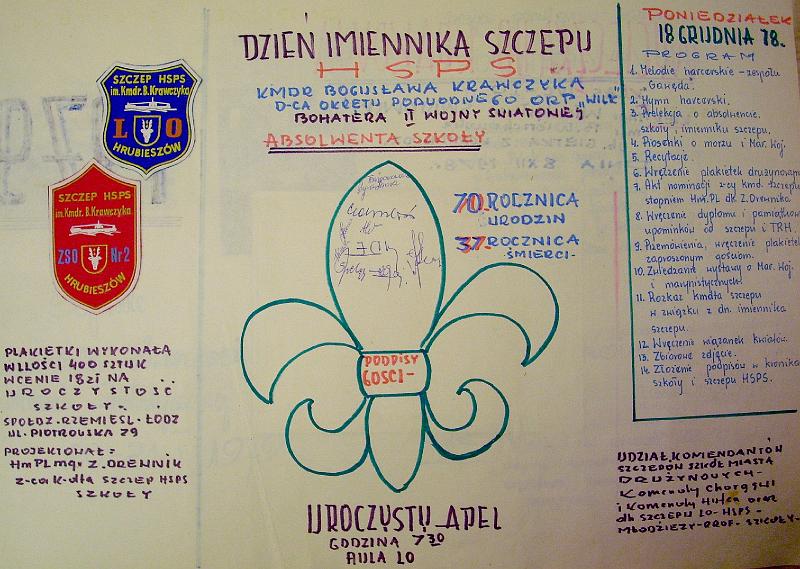 SZCZEP HSPS
im.Kmdr.B.Krawczyka
LO
HRUBIESZÓW
SZCZEP HSPS
im.Kmdr.B.Krawczyka
ZSO Nr2
HRUBIESZÓW
PLAKIETKI WYKONAŁA
W ILOŚCI 400 SZTUK
W CENIE 18 zł NA
UROCZYSTOŚĆ
SZKOŁY.
SPÓŁDZ. RZEMIEŚL. ŁÓDŹ
UL. PIOTROWSKA 79
PROJEKTOWAŁ:
HmPL mgr Z. DRENNIK
z-ca k-dta SZCZEP HSPS
SZKOŁY
DZIEŃ IMIENNIKA SZCZEPU
HSPS
KMDR BOGUSŁAWA KRAWCZYKA
D-CA OKRĘTU PODWODNEGO ORP „WILK"
BOHATERA II WOJNY ŚWIATOWEJ
ABSOLWENTA SZKOŁY
70 ROCZNICA
URODZIN
37 ROCZNICA
ŚMIERCI-
PODPISY
GOŚCI-
UROCZYSTY APEL
GODZINA 7 30
AULA LO
PONIEDZIAŁEK
18 GRUDNIA 78.
PROGRAM
1. Melodie harcerskie - zespołu
Gawęda.
2. Hymn harcerski.
3. Prelekcja o absolwencie
szkoły, imienniku szczepu.
4. Piosenki o morzu i Mar. Woj.
5. Recytacje.
6. Wręczenie plakietek drużynowym
7. Akt nominacji z-cy kmd. szczepu
stopniem Hm. PL dh Z. Drennika
8. Wręczenie dyplomu i pamiątkow.
upominków od szczepu i TRH.
9. Przemówienia, wręczenie plakietek
zaproszonym gościom.
10. Zwiedzanie wystawy o Mar. Woj.
i marynistycznych
11. Rozkaz kmdta szczepu
w związku z dn. imiennika
szczepu.
12. Wręczenie wiązanek kwiatów.
13. Zbiorowe zdjęcie.
14. Złożenie podpisów w kronice
szkoły i szczepu HSPS.
UDZIAŁ, KOMENDANTÓW
SZCZEPÓW SZKÓŁ MIASTA
DRUŻYNOWYCH-
Komendy Chorągwi
i Komendy Hufca oraz
dh SZCZEPU LO-HSPS-
MŁODZIEŻY-PROF-SZKOŁY-